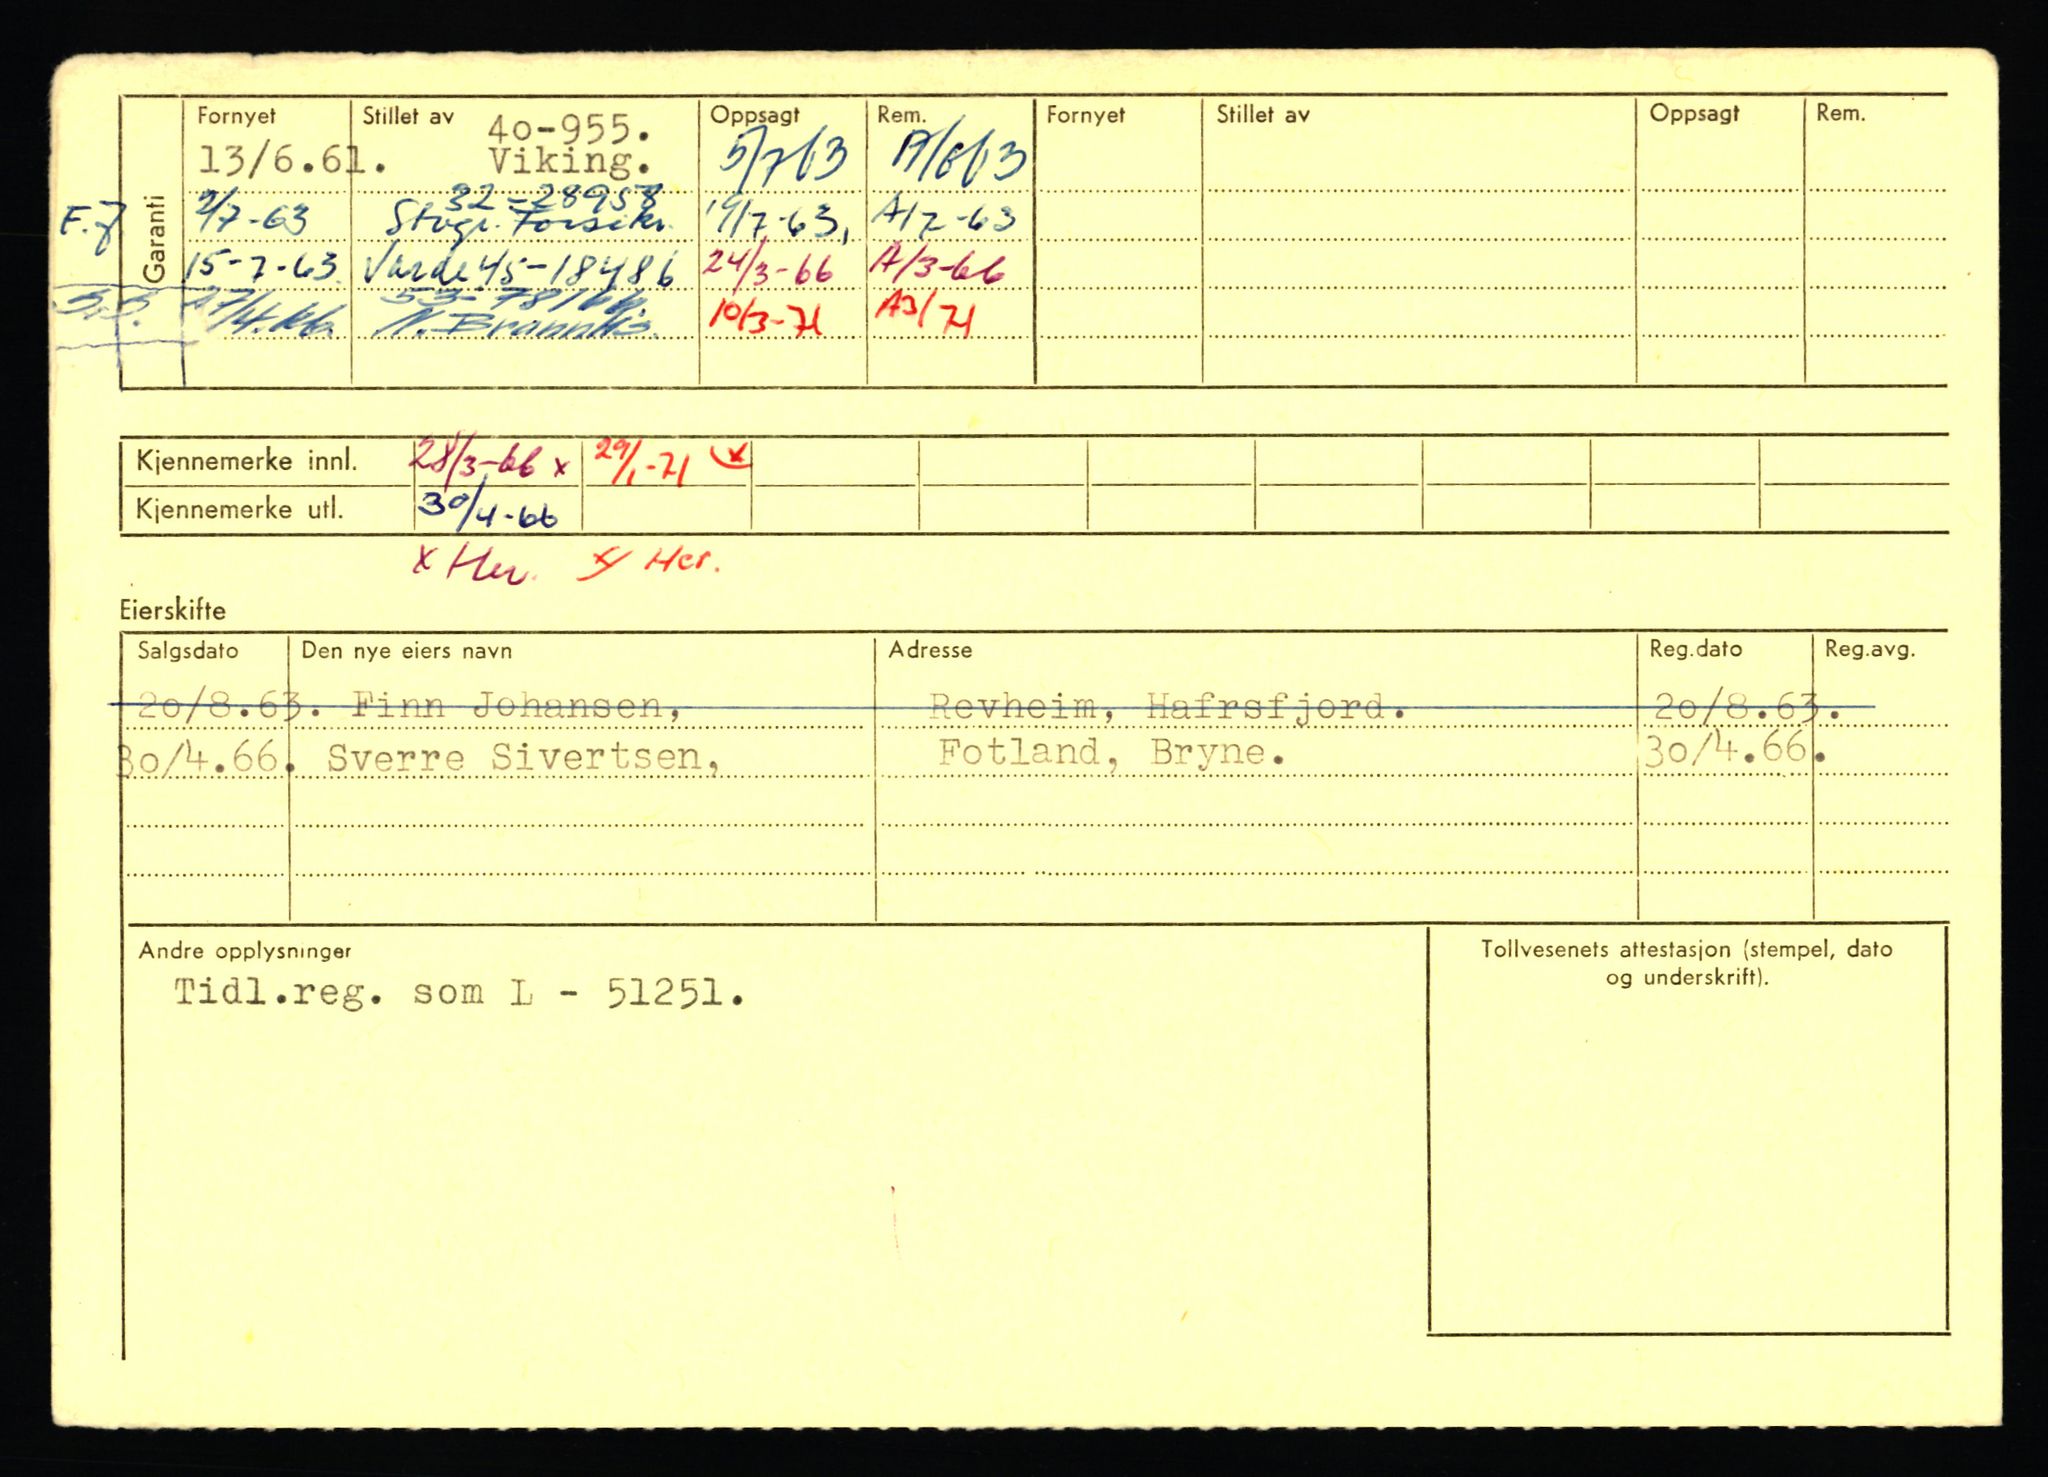 Garanti
Fornyet Stillet av Oppsagt Rem. Fornyet Stillet av Oppsagt Rem.
40-955.
13/6.61. Viking. 5/7 63
32-28958
E.J 2/7-63 Stvgr. Forsikr. 7-63, A/7-63
15-7-63 Varde 45-18486 24/3-66 A/3-66
S.S. 27/4.66 N. Brannkis. 10/3-71 A3/71
Kjennemerke innl. 28/3-66 x 29/1-71 x
Kjennemerke utl. 30/4-66
x Her. x Her.
Eierskifte
Salgsdato Den nye eiers navn Adresse Reg.dato Reg.avg.
20/8.63. Finn Johansen, Revheim, Hafrsfjord. 20/8.63.
30/4.66. Sverre Sivertsen, Fotland, Bryne. 30/4.66.
Andre opplysninger
Tidl.reg. som L - 51251.
Tollvesenets attestasjon (stempel, dato
og underskrift).